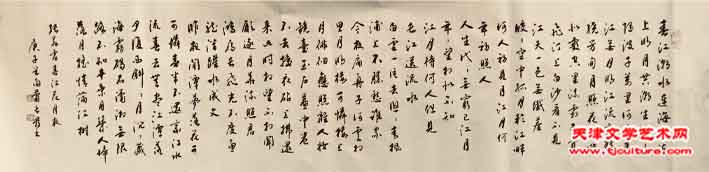 春江潮水連海平海
上明月共潮生灩灩
隨波千萬里何處春
江無月明江流
宛轉繞芳甸月照花林
皆似霰空里流霜不覺
飛汀上白沙看不見
江天一色無纖塵
皎皎空中孤月輪江畔
何人初見月江月何
年初照人
人生代代無窮已江月
年年望相似不知
江月待何人但見
長江送流水
白雲一片去悠悠青楓
浦上不勝愁誰家
今夜扁舟子何處相思
明月樓可憐樓上
月徘徊應照離人妝
鏡臺玉戶簾中卷
不去搗衣砧上拂還
來此時相望不相聞
願逐月華流照君
鴻雁長飛光不度魚
龍潛躍水成文
昨夜閑潭夢落花可
憐春半不還家江水
流春去欲盡江潭落
月復西斜斜月沉沉藏
海霧碣石瀟湘無限
路不知乘月幾人歸
落月搖情滿江樹
張若虛春江花月夜
庚子
天津文学艺术网
www.tjculture.com